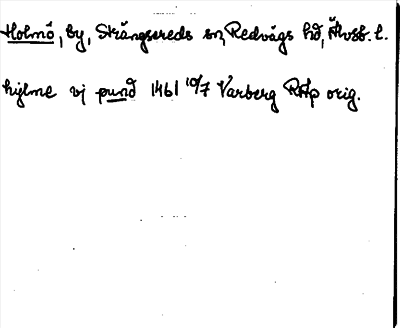 Holmö, by, Strängsereds sn, Redvägs hd, Älvsb. l.
hylme vj pund 1461 10/7 Varberg RAp orig.